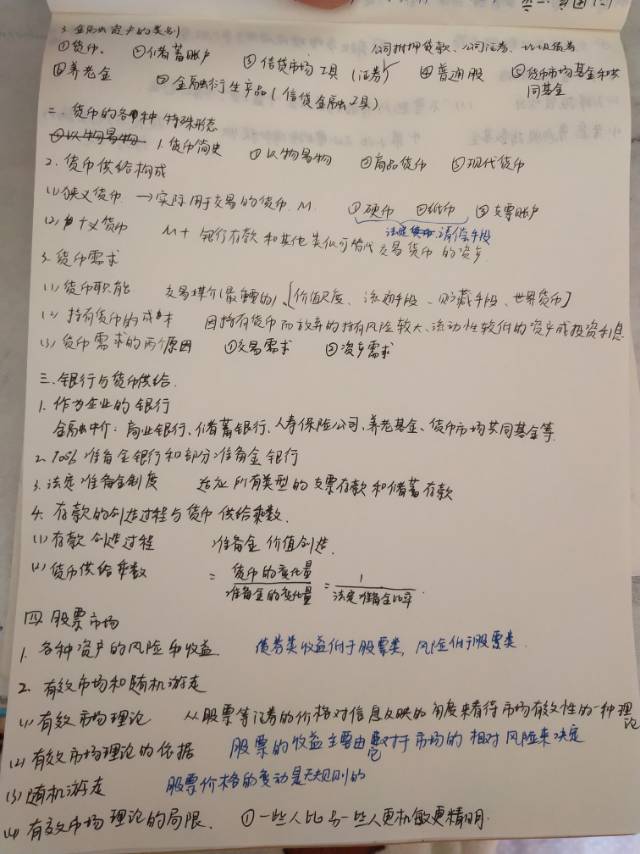 3. 金融资产的类别
公司抵押贷款、公司证券、
①货币. ②储蓄账户 ③信贷市场工具(证券) ④普通股 ⑤货币市场基金和共同基金
⑥养老金 ⑦金融衍生产品(信贷金融工具)
二、货币的各种特殊形态
①以物易物 1.货币简史 ①以物易物 ②商品货币 ③现代货币
2. 货币供给构成
(1)狭义货币 →实际用于交易的货币. M1 ①硬币 ②纸币 ③支票账户
法定货币.清偿手段
(2)广义货币 M1+银行存款和其他类似可替代交易货币的资产
3. 货币需求
(1)货币职能 交易媒介(最重要的)、[价值尺度、流动手段、贮藏手段、世界货币]
(2)持有货币的成本 因持有货币而放弃的持有风险较大、流动性较低的资产或投资利息
(3)货币需求的两个原因 ①交易需求 ②资产需求
三.银行与货币供给.
1. 作为企业的银行
金融中介:商业银行、储蓄银行、人寿保险公司、养老基金、货币市场共同基金等
2. 100%准备金银行和部分准备金银行
3. 法定准备金制度 适应所有类型的支票存款和储蓄存款
4. 存款的创造过程与货币供给乘数.
(1)存款创造过程 准备金价值创造.
(2)货币供给乘数 = 货币的变化量/准备金的变化量 = 1/法定准备金比率.
四 股票市场
1. 各种资产的风险和收益 债券类收益低于股票类, 风险低于股票类
2. 有效市场和随机游走
(1)有效市场理论 从股票等证券的价格对信息反映的角度来看待市场有效性的一种理论
(2)有效市场理论的依据 股票的收益主要由它对于市场的相对风险来决定
(3)随机游走 股票价格的变动是无规则的
(4)有效市场理论的局限. ①一些人比另一些人更机敏更精明.